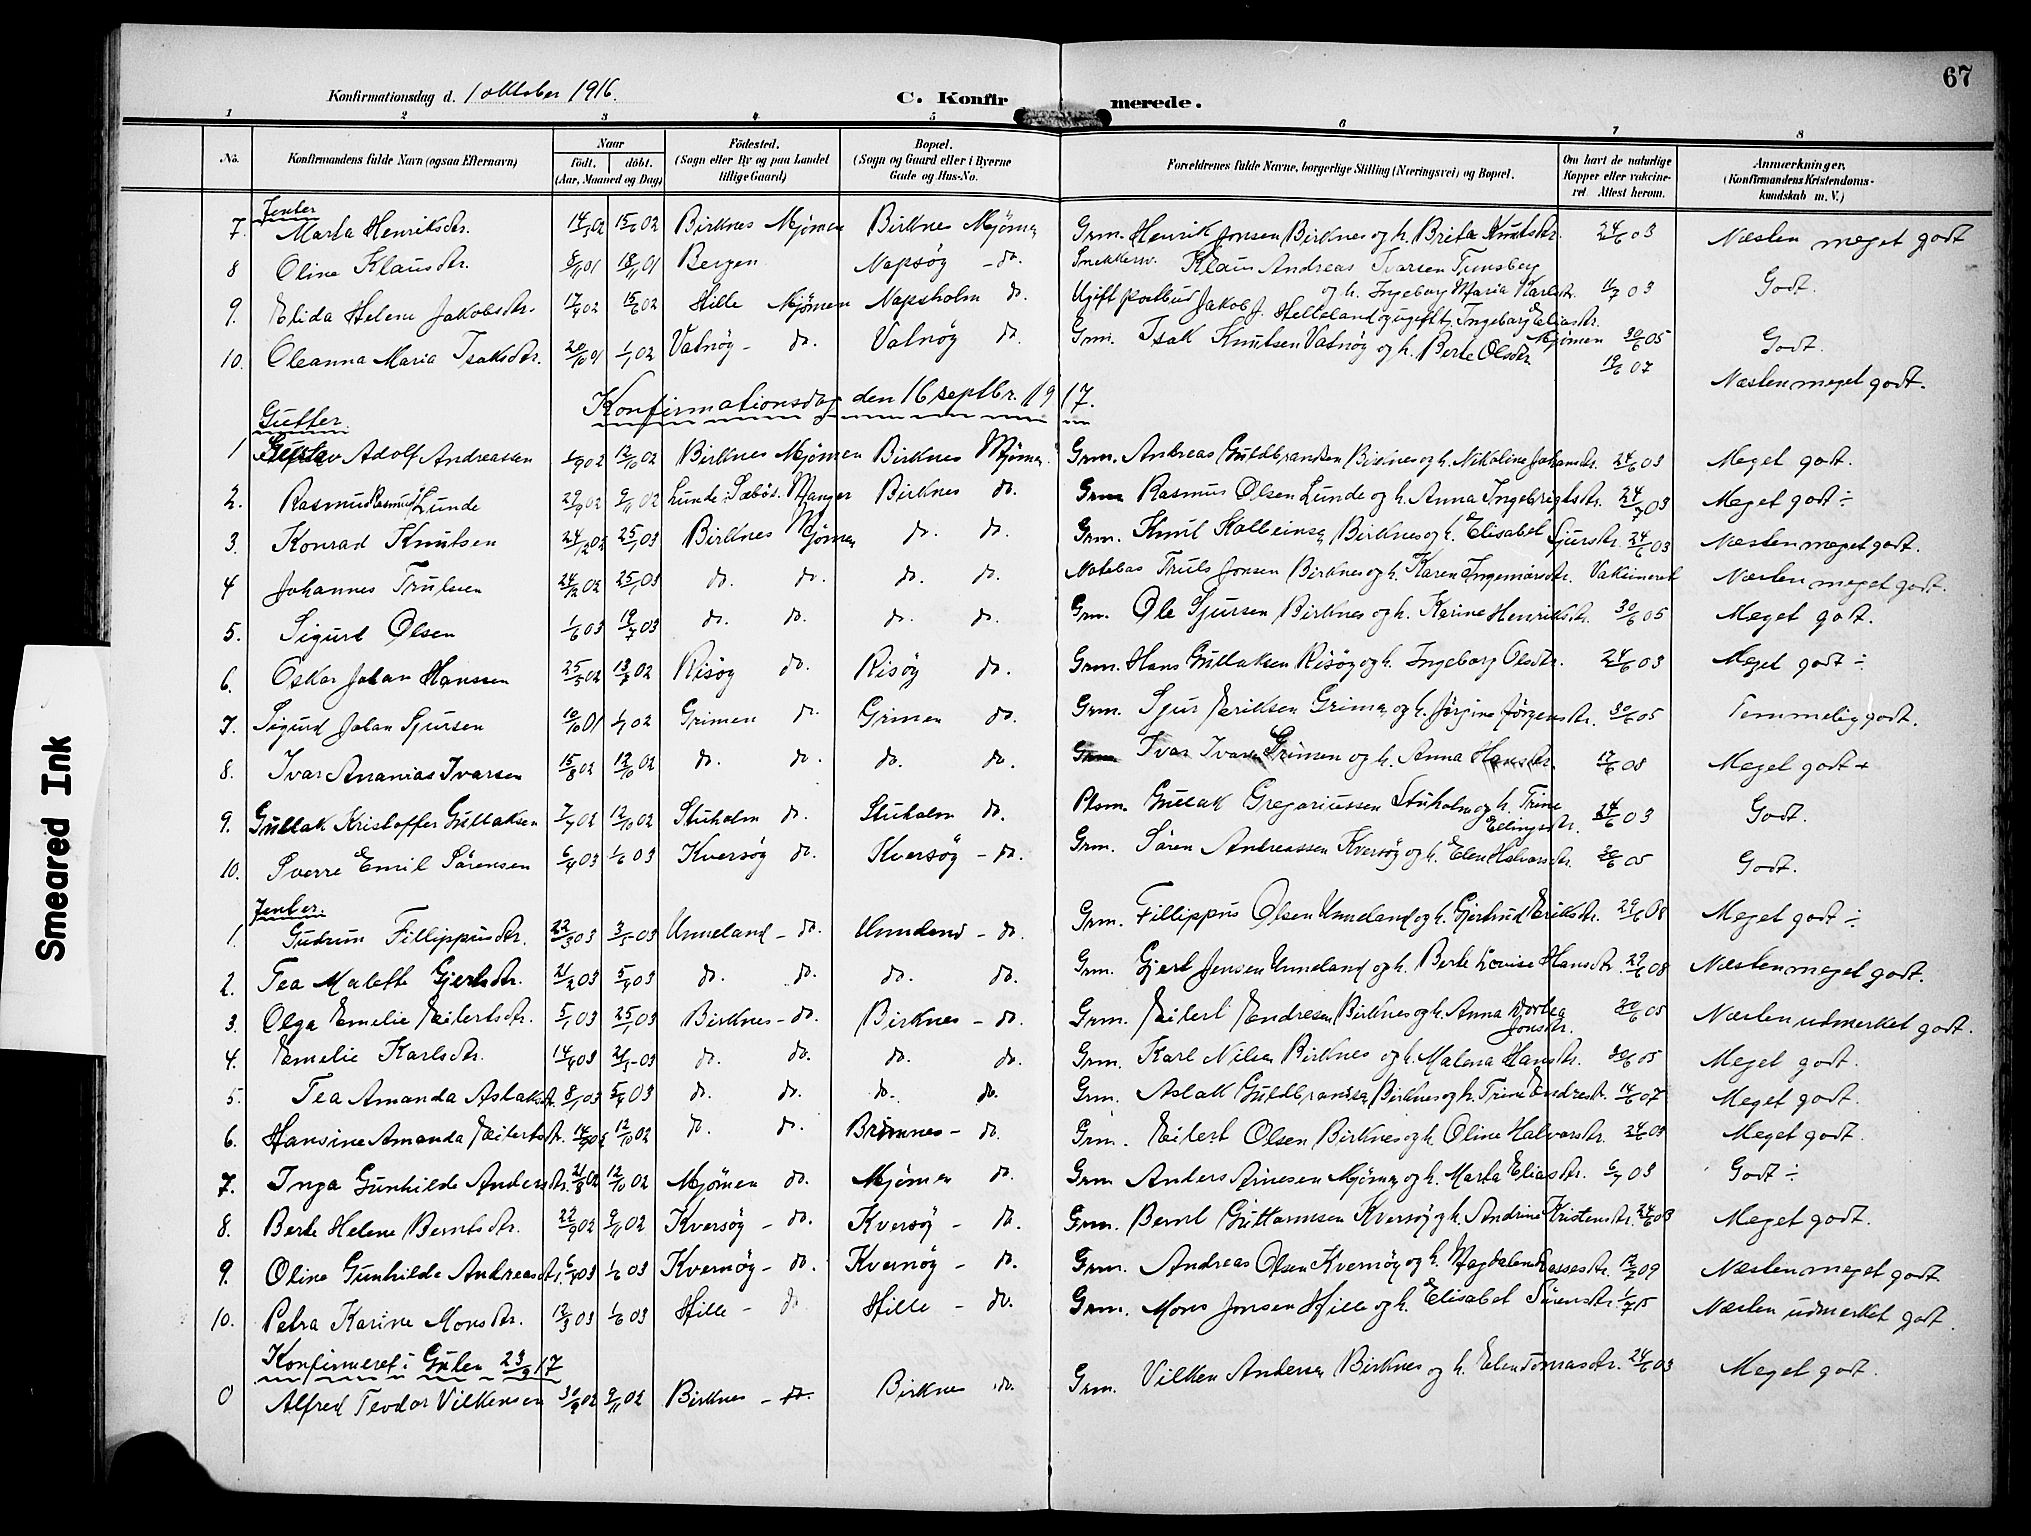 67
Konfirmationsdag d. 1 oktober 1916.
C. Konfirmerede.
1 2 3 4 5 6 7 8
No.
Konfirmandens fulde Navn (ogsaa Efternavn)
Naar
födt, döbt.
(Aar, Maaned og Dag)
Födested.
(Sogn eller By og paa Landet
tillige Gaard)
Bopæl.
(Sogn og Gaard eller i Byerne
Gade og Hus-No.
Forældrenes fulde Navne, borgerlige Stilling (Næringsvei) og Bopæl.
Om havt de naturlige
Kopper eller vakcine-
ret Attest herom.
Anmærkninger.
(Konfirmandens Kristendoms-
kundskab m. V.)
Jenter
7. Marta Henriksdtr. 14/5 02 15/6 02 Birknes Mjömen Birknes Mjömen Grm. Henrik Jonsen Birknes og h. Brita Knutsdtr. 24/6 03 Næsten meget godt
8 Oline Klausdtr. 8/9 01 18/11 01 Bergen Napsög - do. Snekkersv. Klaus Andreas Ivarsen Tunsberg
og h. Ingeborg Maria Karlsdtr. 7 03 Godt.
9. Elida Helene Jakobsdtr. 17/4 02 15/6 02 Hille Mjömen Napsholm do. Ugift Jakob J. Helleland og ugift Ingeborg Eliasdtr.
Mjömen 30/6 05 Godt.
10. Oleanna Maria Isaksdtr. 20/10 01 1/1 02 Vatnöy - do. Vatnöy do. Grm. Isak Knutsen Vatnöy og h. Berte Olsdtr. 19/6 07 Næsten meget godt.
Konfirmationsdag den 16 septbr. 1917.
Gutter.
1 Gustav Adolf Andreassen 1/9 02 12/10 02 Birknes Mjömen Birknes Mjömen Grm. Andreas Guldbrandsen Birknes og h. Nikoline Johansdtr. 24/6 03 Meget godt.
2. Rasmus Rasmus Lunde 29/9 02 9/11 02 Lunde, Sæbö s. Manger Birknes do. Grm Rasmus Olsen Lunde og h. Anna Ingebrigtsdtr. 24/7 03 Meget godt ÷
3. Konrad Knutsen 24/12 02 25/1 03 Birknes Mjömen do. do. Grm. Knut Kolbeinsen Birknes og h. Elisabet Sjursdtr. 24/6 03 Næsten meget godt.
4 Johannes Trulsen 24/12 02 25/1 03 do. do. do. do. Notebas Truls Jonsen Birknes og h. Karen Ingemarsdtr. Vaksineret Næsten meget godt.
5. Sigurd Olsen 1/6 03 19/7 03 do. do. do. do. Grm. Ole Sjursen Birknes og h. Karine Henriksdtr. 30/6 05 Meget godt.
6. Oskar Johan Hanssen 25/5 02 13/7 02 Risöy do. Risöy do. Grm. Hans Gullaksen Risöy og h. Ingeborg Olsdtr. 24/6 03 Meget godt ÷
7. Sigurd Johan Sjursen 10/10 01 1/1 02 Grimen do Grimen do. Grm. Sjur Eriksen Grimen og h. Jörgine Jörgensdtr. 30/6 05 Temmelig godt.
8. Ivar Ananias Ivarsen 15/8 02 12/10 02 do. do. do. do. Grm Ivar Ivarsen Grimen og h. Anna Hansdtr. 17/6 08 Meget godt +
9. Gullak Kristoffer Gullaksen 7/7 02 12/10 02 Stuholm do. Stuholm do. Plsm. Gullak Gregoriussen Stuholm og h. Trine
Ellingsdtr. 24/6 03 Godt.
10. Sverre Emil Sörensen 6/4 03 1/6 03 Kversöy do. Kversöy - do. Grm. Sören Andreassen Kversöy og h. Elen Halvorsdtr. 30/6 05 Godt.
Jenter.
1. Gudrun Fillippusdtr. 22/3 03 3/5 03 Unneland - do. Unneland - do. Grm. Fillippus Olsen Unneland og h. Gjertrud Eriksdtr. 29/6 08 Meget godt ÷
2. Tea Malette Gjertsdtr. 21/2 03 5/4 03 do. do. do. do. Grm. Gjert Jensen Unneland og h. Berte Lovise Hansdtr. 29/6 08 Næsten meget godt.
3. Olga Emelie Eilertsdtr. 5/1 03 25/1 03 Birknes - do. Birknes - do. Grm. Eilert Endresen Birknes og h. Anna Dortea
Jonsdtr. 30/6 05 Næsten udmerket godt.
4. Emelie Karlsdtr. 14/4 03 21/5 03 do. do. do. do. Grm. Karl Nilsen Birknes og h. Malena Hansdtr. 30/6 05 Meget godt.
5. Tea Amanda Aslaksdtr. 8/1 03 5/4 03 do. do. do. do. Grm. Aslak Guldbrandsen Birknes og h. Trine Endresdtr. 14/6 07 Meget godt.
6. Hansine Amanda Eilertsdtr. 14/9 02 12/10 02 do. do. Brimnes - do. Grm. Eilert Olsen Birknes og h. Oline Halvorsdtr. 24/6 03 Meget godt.
7. Inga Gunhilde Andersdtr. 21/8 02 12/10 02 Mjömen do. Mjömen do. Grm Anders Arnesen Mjömen og h. Marta Eliasdtr. 6/7 03 Godt ÷
8. Berte Helene Berntsdtr. 22/9 02 9/11 02 Kversöy - do. Kversöy - do. Grm. Bernt Guttormsen Kversöy og h. Andrine Kristensdtr. 24/6 03 Meget godt.
9. Oline Gunhilde Andreasdtr. 6/4 03 1/6 03 Kvernöy - do. Kvernöy - do. Grm. Andreas Olsen Kvernöy og h. Magdalena Lassesdtr. 12/2 09 Næsten meget godt
10. Petra Karine Monsdtr. 12/3 03 1/6 03 Hille - do Hille - do. Grm. Mons Jonsen Hille og h. Elisabet Sörensdtr. 1/7 15 Næsten udmerket godt.
Konfirmeret i Gulen 23/9 17
0 Alfred Teodor Vilkensen 30/9 02 9/11 02 Birknes - do. Birknes do. Grm. Vilken Andersen Birknes og h. Elen Tomasdtr. 24/6 03 Meget godt.
Smeared Ink